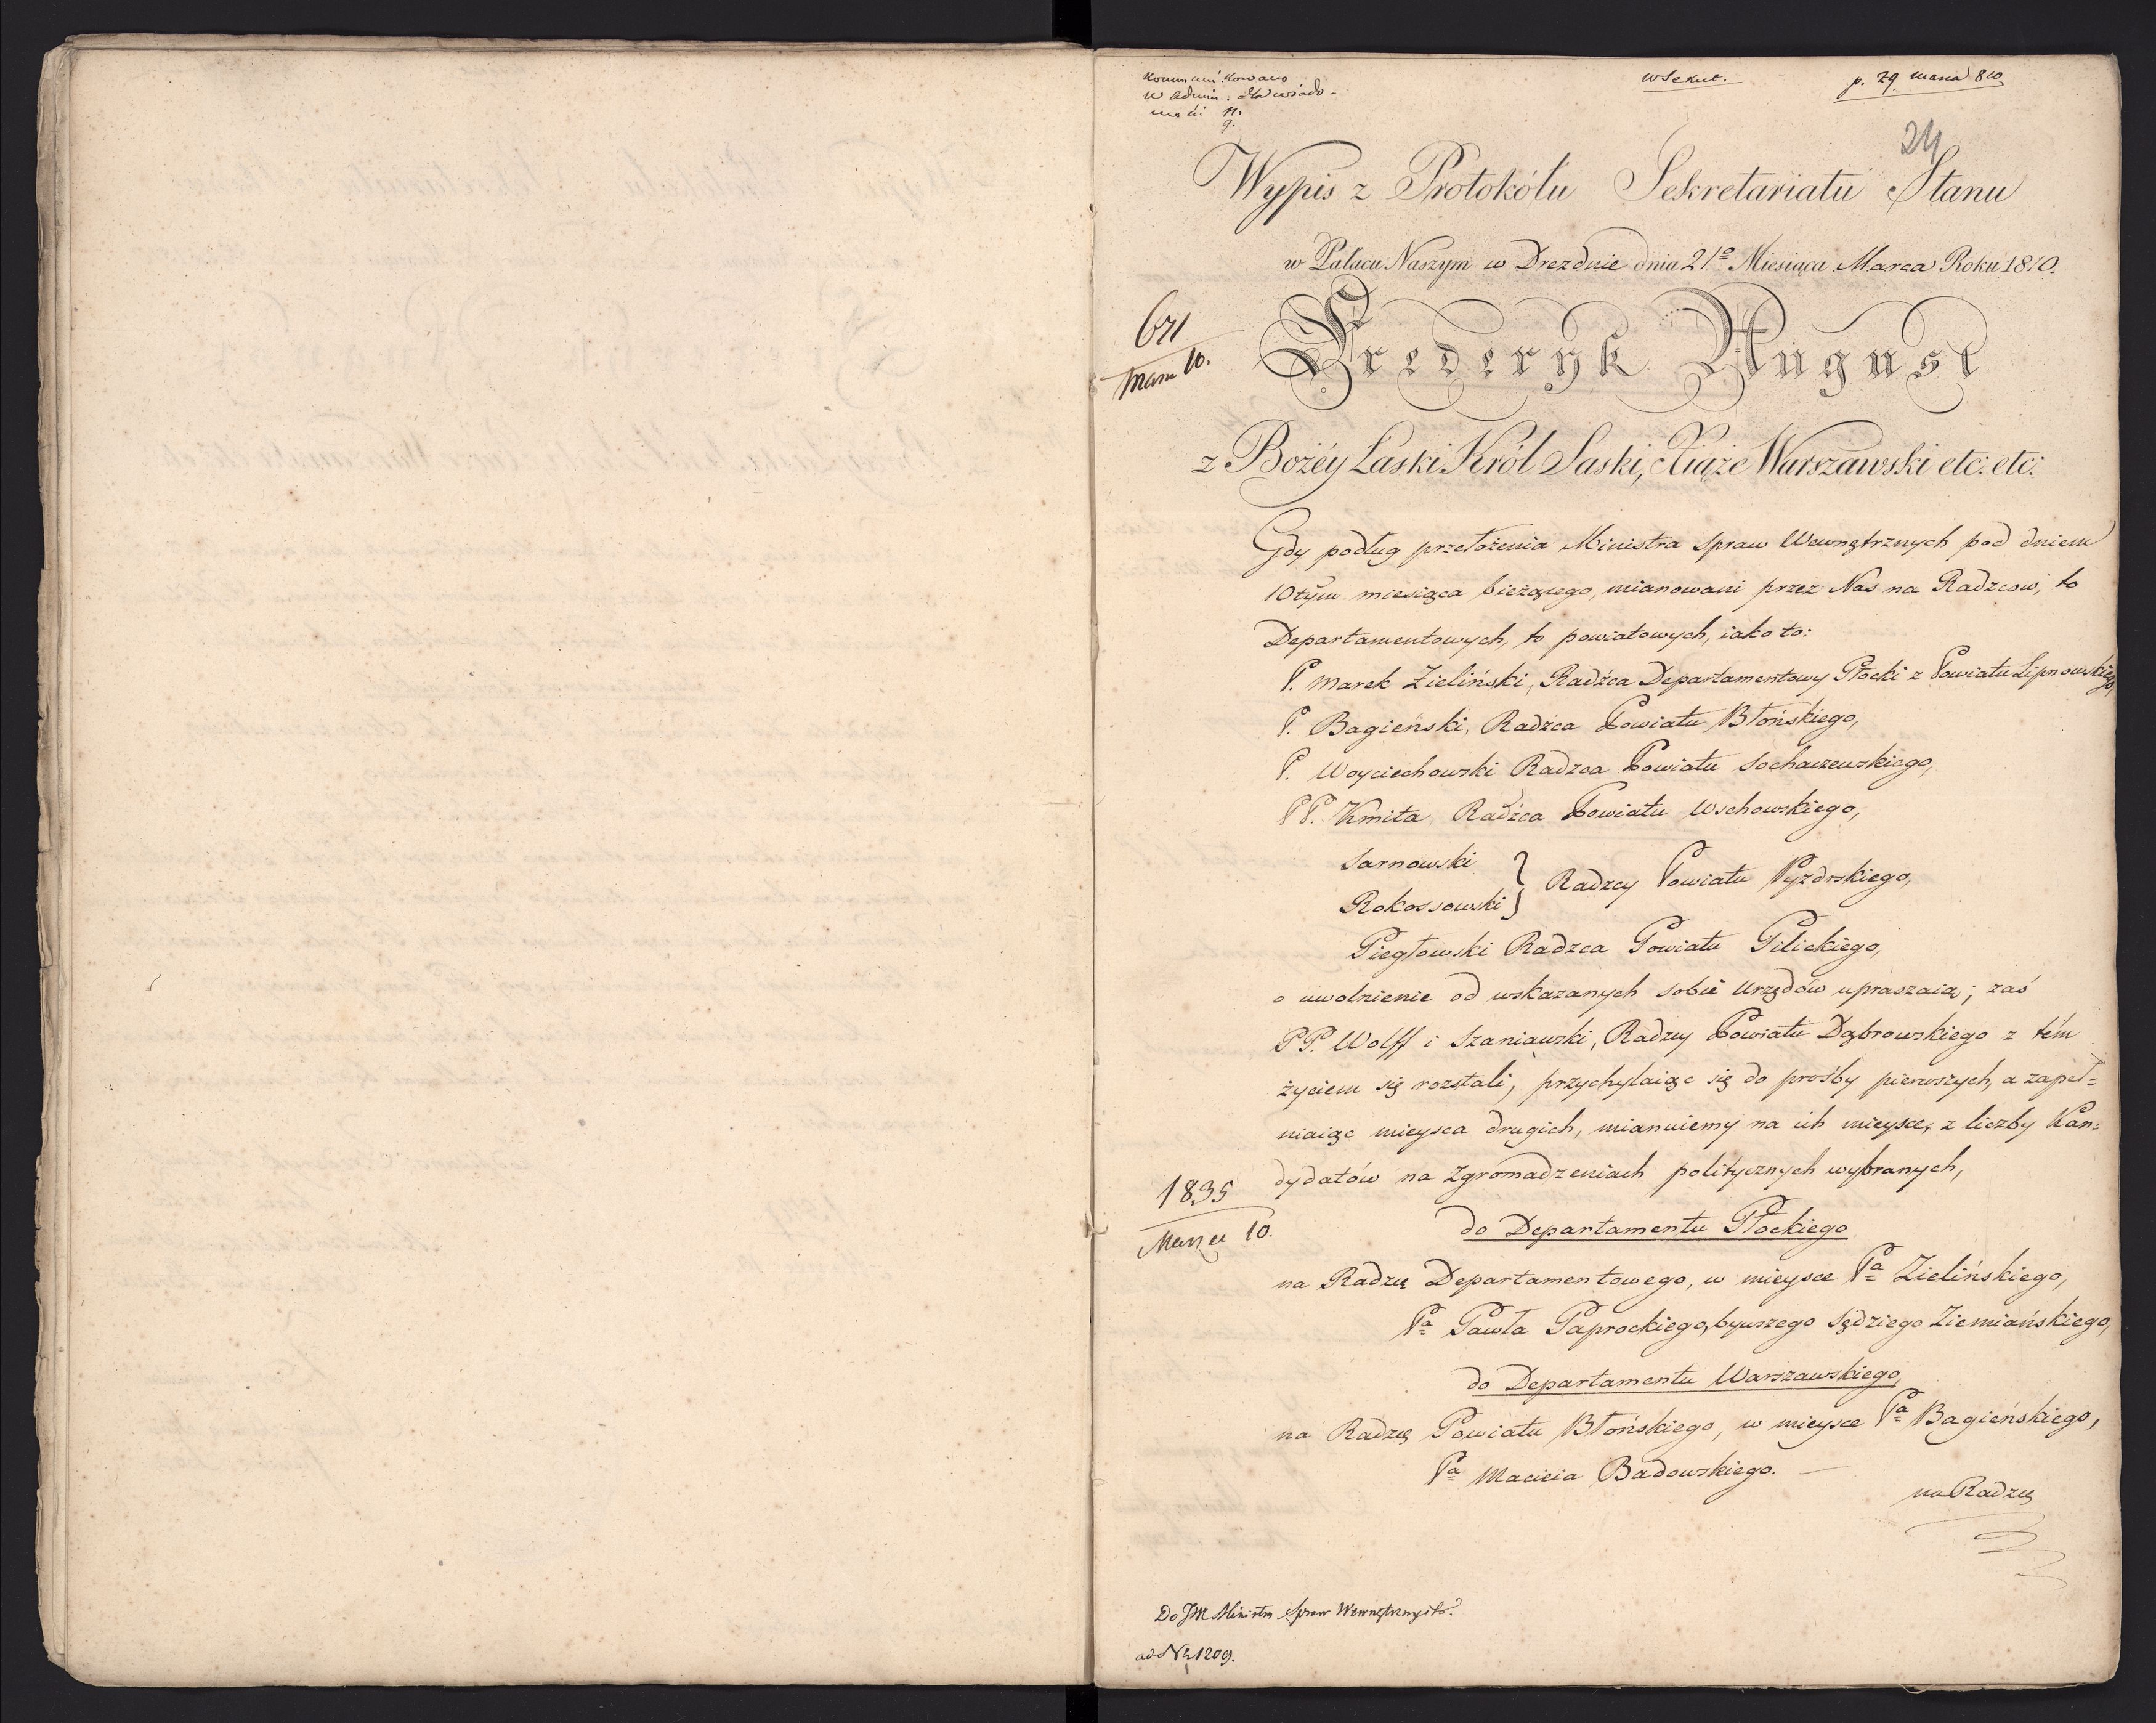 Kommunikowano
w Admin. dla wiado-
mości
w Sekret.
p. 29 marca 810
24
Wypis z Protokółu Sekretariatu Stanu
w Pałacu Naszym w Dreznie dnia 21º Miesiąca Marca Roku 1810.
671
Marca 10.
Fryderyk August
z Bożéy Łaski Król Saski, Xiąże Warszawski etc: etc:
Gdy podług przełożenia Ministra Spraw Wewnętrznych pod dniem
10tym miesiąca bieżącego, mianowani przez Nas na Radzców, to
Departamentowych, to powiatowych, iako to:
P. Marek Zieliński, Radźca Departamentowy Płocki z Powiatu Lipnowskiego,
P. Bagieński, Radźca Powiatu Błońskiego,
P. Woyciechowski Radzca Powiatu Sochaczewskiego,
PP. Kmita Radźca Powiatu Wschowskiego,
Sarnowski
Rokossowski } Radzcy Powiatu Pyzdrskiego,
Piegłowski Radzca Powiatu Pilickiego,
o uwolnienie od wskazanych sobie Urzędów upraszaią; zaś
PP. Wolff i Szaniawski, Radzcy Powiatu Dąbrowskiego z tém
życiem się rozstali, przychylaiąc się do prośby pierwszych, a zapeł=
niaiąc mieysca drugich, mianuiemy na ich mieysce, z liczby Kan=
dydatów na Zgromadzeniach politycznych wybranych,
1835
Marca 10.
do Departamentu Płockiego
na Radzcę Departamentowego, w mieysce Pa Zielińskiego,
Pa Pawła Paprockiego, bywszego Sędziego Ziemiańskiego,
do Departamentu Warszawskiego
na Radzcę Powiatu Błońskiego, w mieysce Pa Bagieńskiego,
Pa Macieia Badowskiego. —
na Radzcę
Do JM Ministra Spraw Wewnętrznych.
ad Nr 1209.